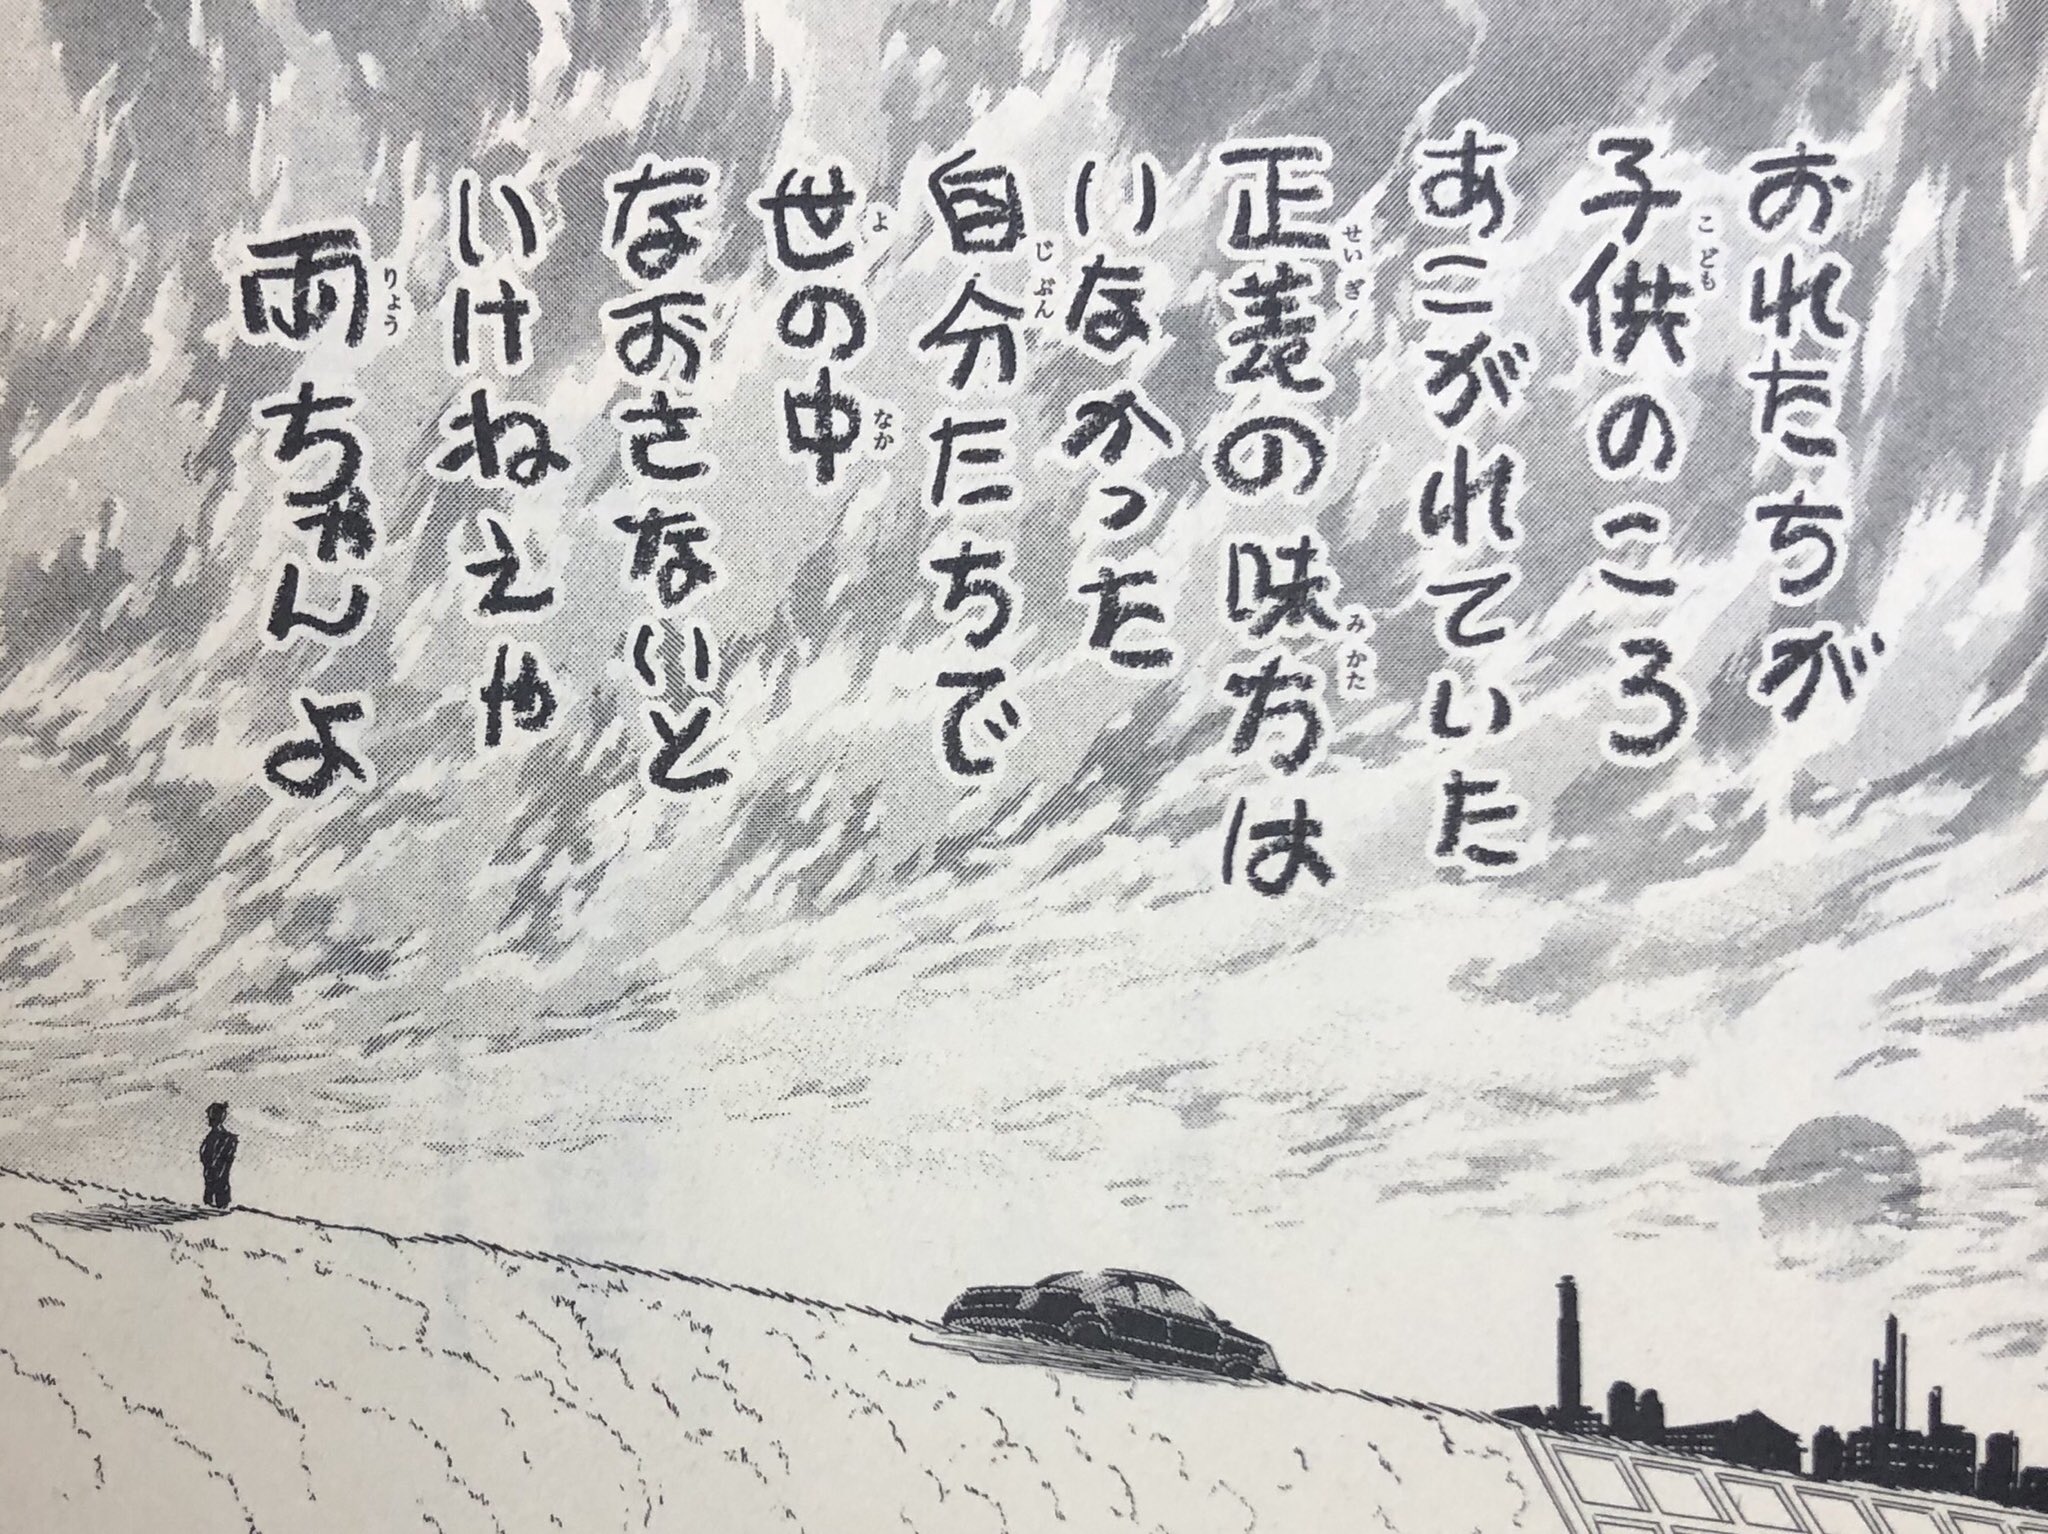 おれたちが
子供のころ
あこがれていた
正義の味方は
いなかった
自分たちで
世の中
なおさないと
いけねえや
両ちゃんよ